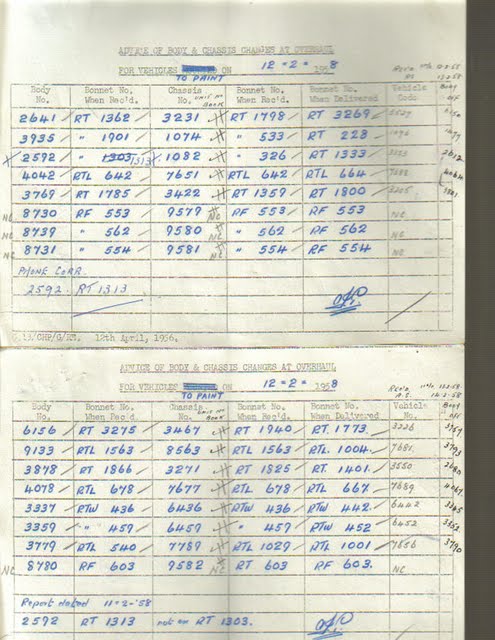 ADVICE OF BODY & CHASSIS CHANGES AT OVERHAUL
FOR VEHICLES TO PAINT ON 12 = 2 = 1958
Body No. Bonnet No. When Rec'd. Chassis No. Unit No Book Bonnet No. When Rec'd. Bonnet No. When Delivered Vehicle Code Body Off
2641 RT 1362 3231 RT 1798 RT 3269
3935 " 1901 1074 " 533 RT 228
X 2592 " 1303 1313 1082 " 326 RT 1333 2612
4042 RTL 642 7651 RTL 642 RTL 664
3769 RT 1785 3422 RT 1359 RT 1800
NC 8730 RF 553 9579 NC RF 553 RF 553 NC
NC 8739 " 562 9580 NC " 562 RF 562 NC
NC 8731 " 554 9581 NC " 554 RF 554 NC
PHONE CORR.
2592 RT 1313
12th April, 1956.
ADVICE OF BODY & CHASSIS CHANGES AT OVERHAUL
FOR VEHICLES TO PAINT ON 12 = 2 = 1958
Body No. Bonnet No. When Rec'd. Chassis No. Unit No Book Bonnet No. When Rec'd. Bonnet No. When Delivered Vehicle No. Body
6156 RT 3275 3467 RT 1940 RT. 1773 3226
9133 RTL 1563 8563 RTL 1563 RTL. 1004 7681
3878 RT 1866 3271 RT 1825 RT. 1401 3550
4078 RTL 678 7677 RTL 678 RTL 667 7689
3337 RTW 436 6436 RTW 436 RTW 442 6442
3359 " 459 6459 " 459 RTW 452 6452
3779 RTL 540 7789 RTL 1029 RTL 1001 7656 3790
NC 8780 RF 603 9582 NC RT 603 RF 603. NC
Report dated 11-2-'58
2592 RT 1313 not on RT 1303.